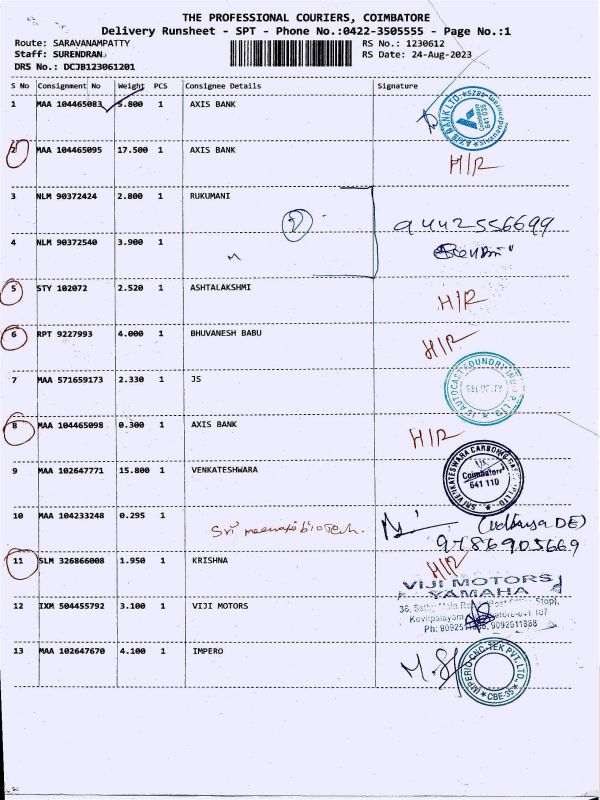 THE PROFESSIONAL COURIERS, COIMBATORE
Delivery Runsheet - SPT - Phone No.:0422-3505555 - Page No.:1
Route: SARAVANAMPATTY RS No.: 1230612
Staff: SURENDRAN RS Date: 24-Aug-2023
DRS No.: DCJB123061201
S No Consignment No Weight PCS Consignee Details Signature
1 MAA 104465083 5.800 1 AXIS BANK
AXIS BANK LTD. Coimbatore 641 035
2 MAA 104465095 17.500 1 AXIS BANK H/R
3 NLM 90372424 2.800 1 RUKUMANI
2 9442556699
4 NLM 90372540 3.900 1
5 STY 102072 2.520 1 ASHTALAKSHMI H/R
6 RPT 9227993 4.000 1 BHUVANESH BABU H/R
7 MAA 571659173 2.330 1 JS
JS AUTOCAST FOUNDRY SECURITY
8 MAA 104465098 0.300 1 AXIS BANK H/R
9 MAA 102647771 15.800 1 VENKATESHWARA
SRI VENKATESWARA CARBONIC Coimbatore 641 110
10 MAA 104233248 0.295 1 Sri
9786905669
11 SLM 326866008 1.950 1 KRISHNA H/R
VIJI MOTORS
YAMAHA
12 IXM 504455792 3.100 1 VIJI MOTORS
Kovilpalayam
9092511888
13 MAA 102647670 4.100 1 IMPERO
IMPERIO CNC-TEK PVT. LTD. CBE-35